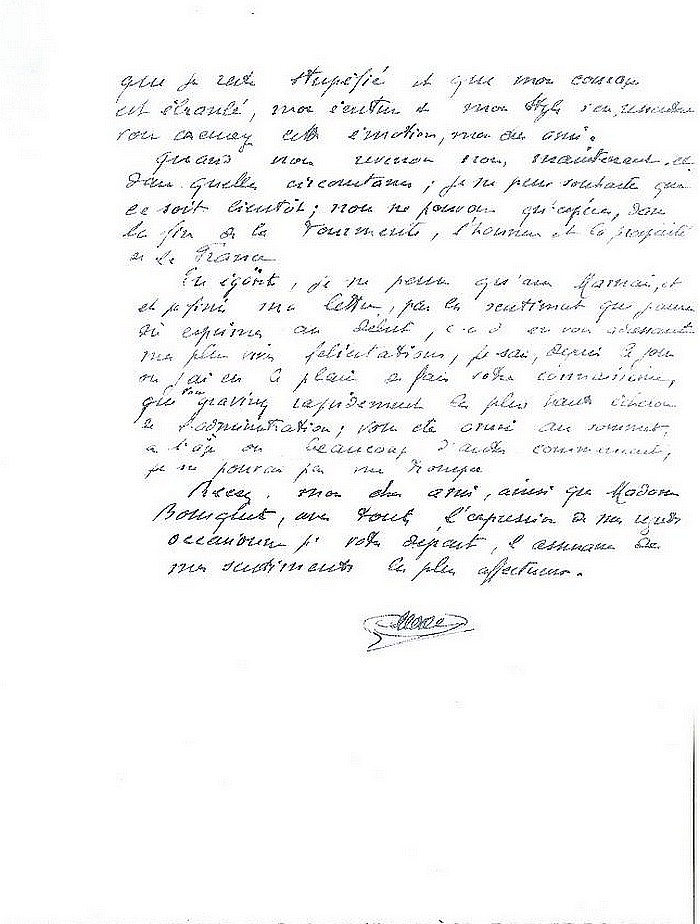 que je reste stupéfié et que mon courage
est ébranlé, mon écriture et mon style s'en ressentent
vous excusez cette émotion, mon cher ami.
Quand nous reverrons nous, maintenant, et
dans quelles circonstances ; je ne peux souhaiter que
ce soit bientôt ; nous ne pouvons qu'espérer, dans
la fin de la Tourmente, l'honneur et la prospérité
de la France
En égoïste, je ne pense qu'aux
et je finis ma lettre, par les sentiments que j'aurais
dû exprimer au début, c a d en vous adressant
mes plus vives félicitations, je sais, depuis le jour
où j'ai eu le plaisir de faire votre connaissance,
que vous graviriez rapidement les plus hauts échelons
de l'administration ; vous êtes arrivé au sommet,
à l'âge où beaucoup d'autres commencent,
je ne pouvais pas me tromper
Recevez, mon cher ami, ainsi que Madame
Bousquet, avec toute l'expression de mes regrets
occasionnés par votre départ, l'assurance de
mes sentiments les plus affectueux.